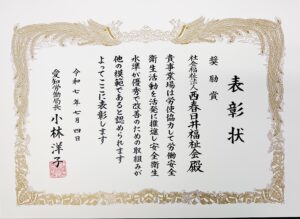 表彰状
奨励賞
社会福祉法人西春日井福祉会殿
貴事業場は労使協力して労働安全
衛生活動を活発に推進し安全衛生
水準が優秀で改善のための取組みが
他の模範であると認められます
よってここに表彰します
令和七年七月四日
愛知労働局長 小林洋子